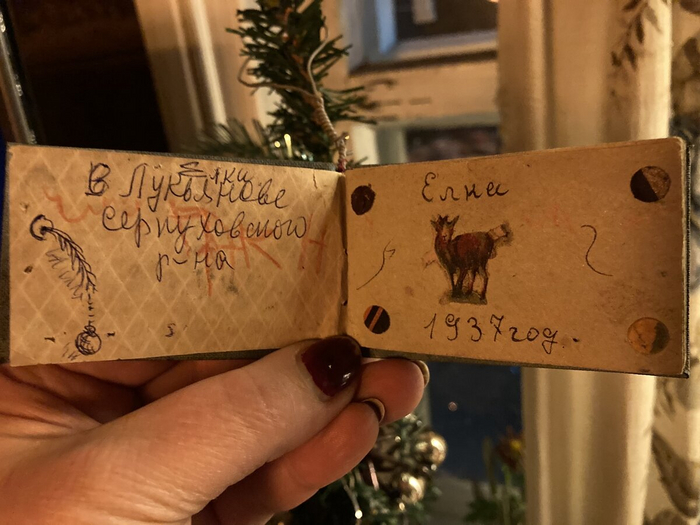 Елка
В Лукьянове
серпуховского
р-на
Елка
1937 год.